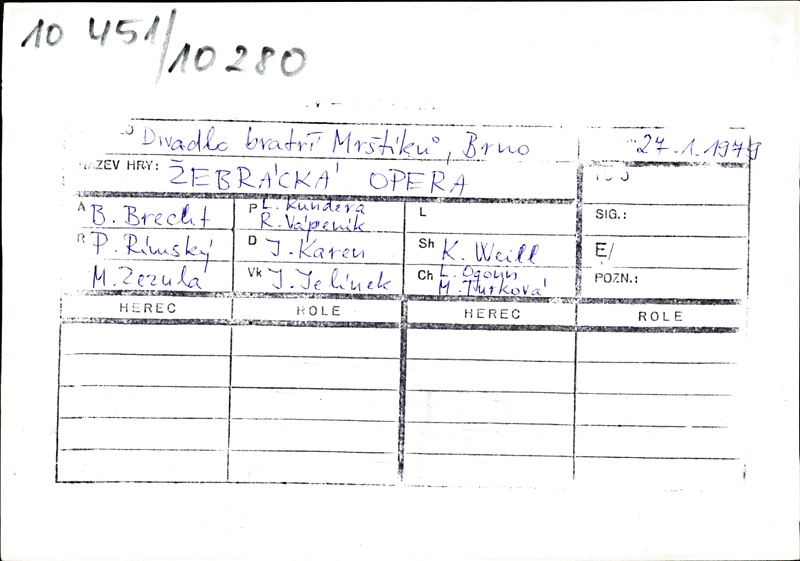 10 451/10 280
Divadlo bratří Mrštíků, Brno
27.1.1979
NÁZEV HRY: ŽEBRÁCKÁ OPERA
A B. Brecht
P L. Kundera
R. Vápeník
L
SIG.:
R P. Rímský
M. Zezula
D J. Karen
Sh K. Weill
E/
Vk J. Jelínek
Ch L. Ogoun
M. Turková
POZN.:
HEREC ROLE HEREC ROLE